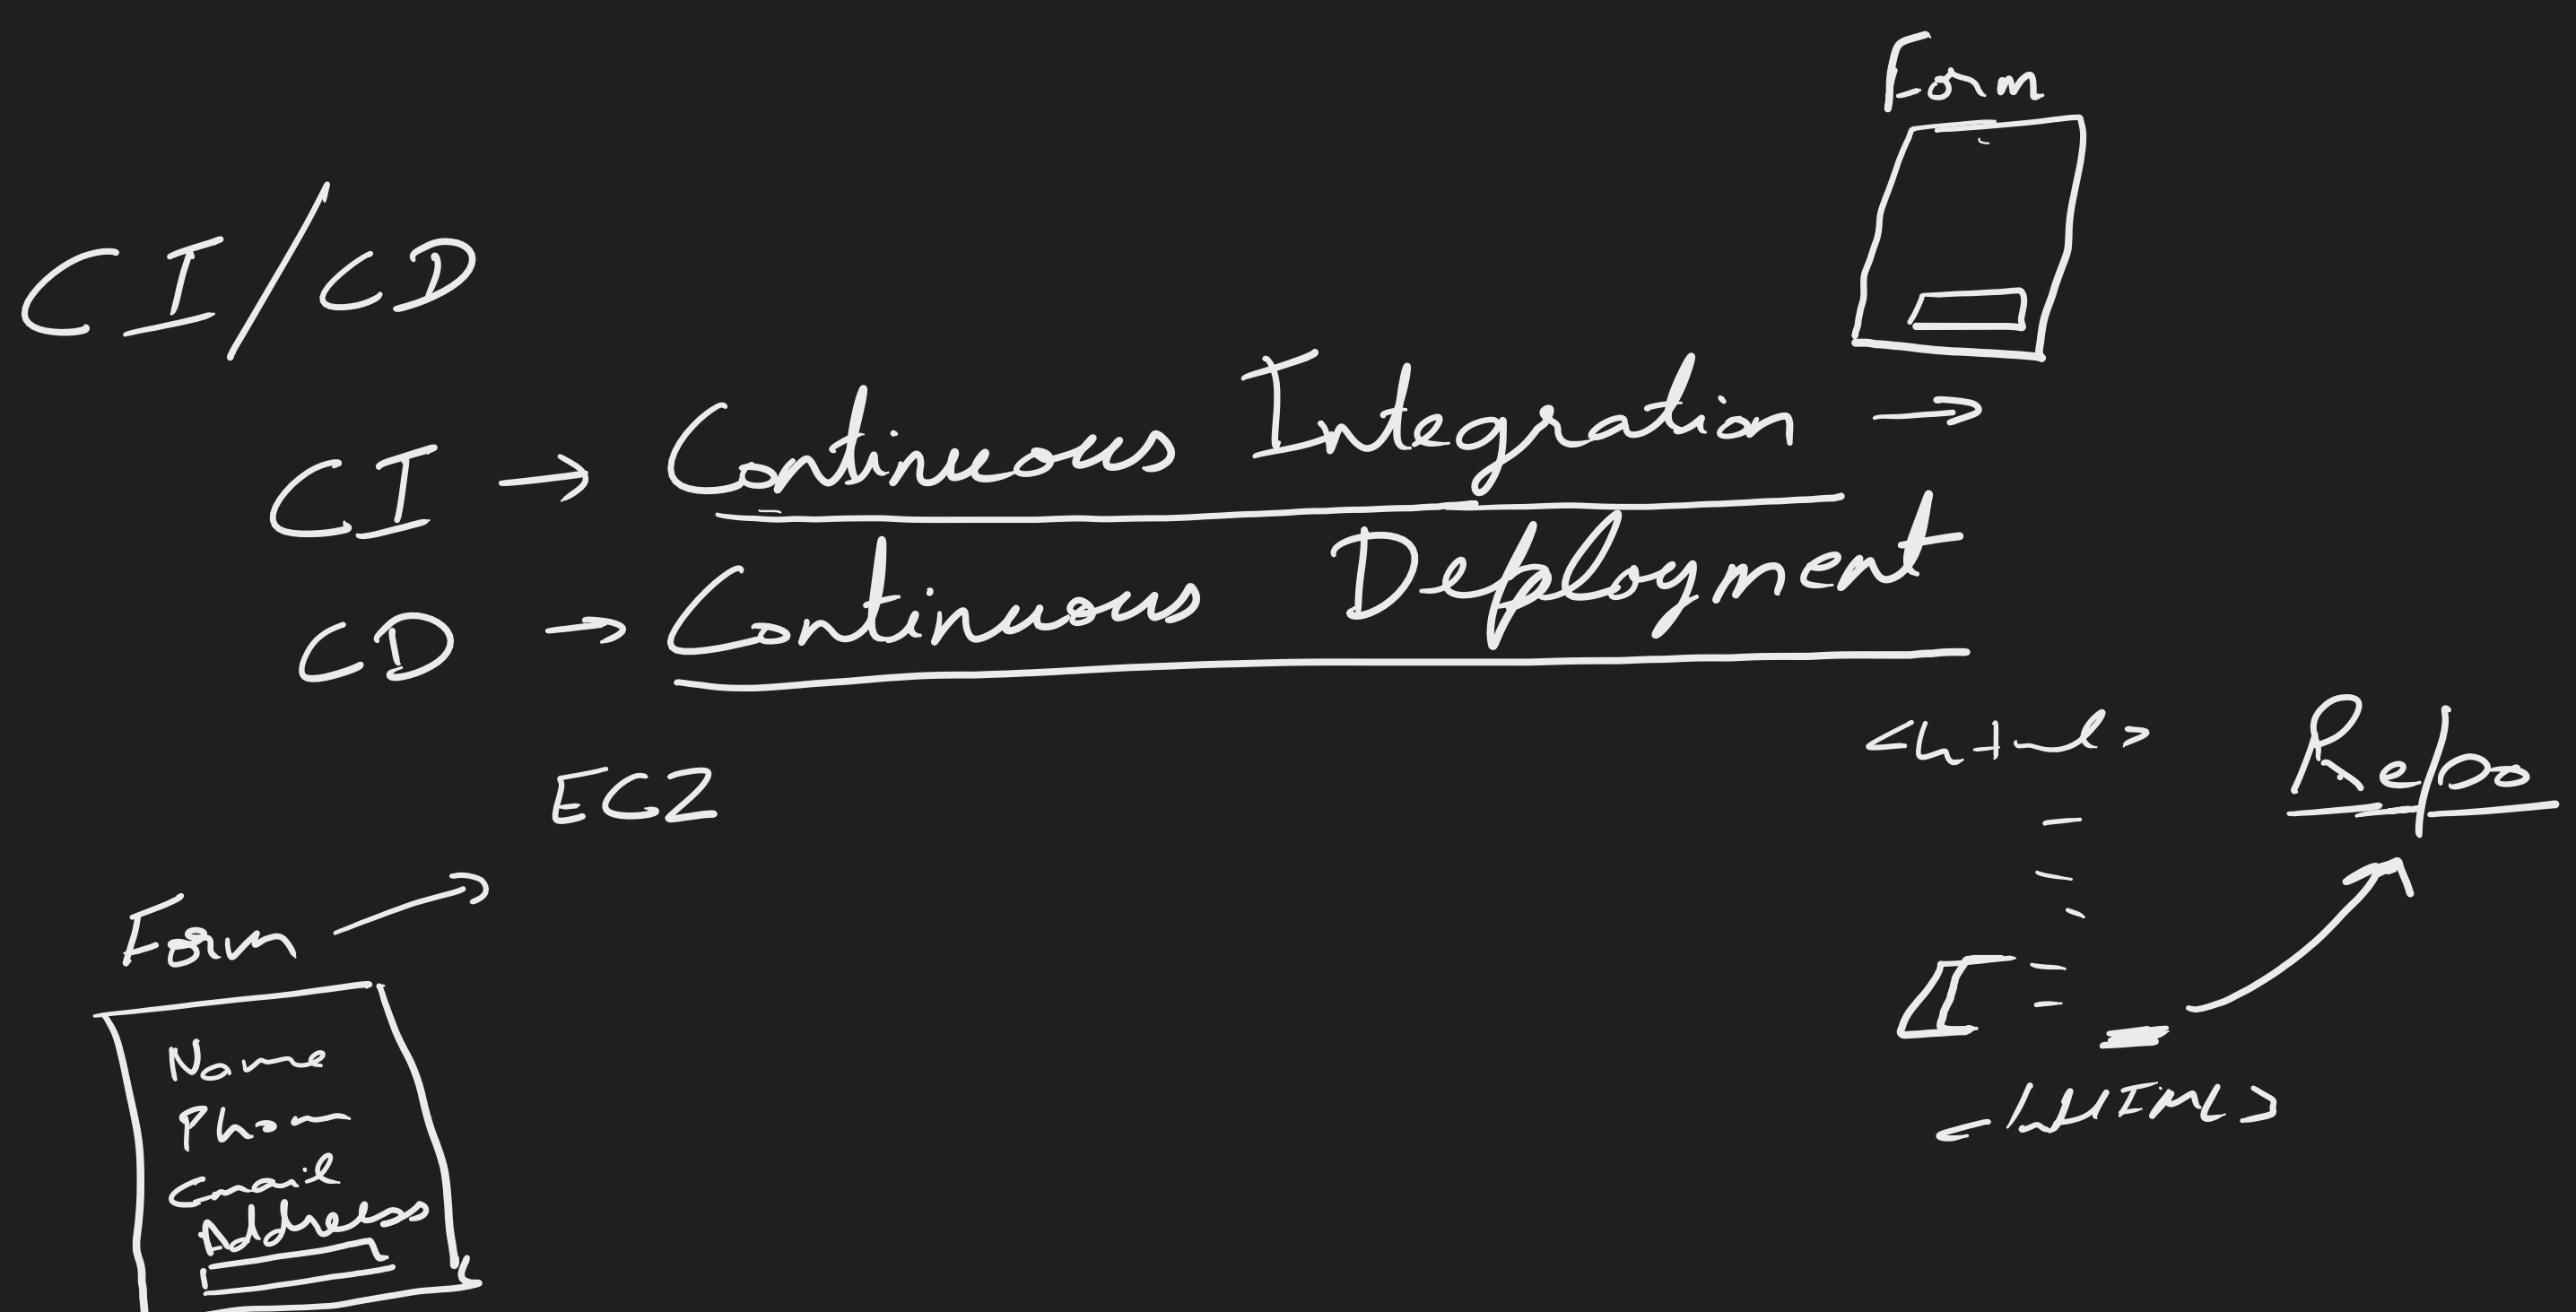 Form
CI/CD
CI → Continuous Integration →
CD → Continuous Deployment
<html>
Repo
EC2
Form →
Name
Phon
Email
Address
</HTML>